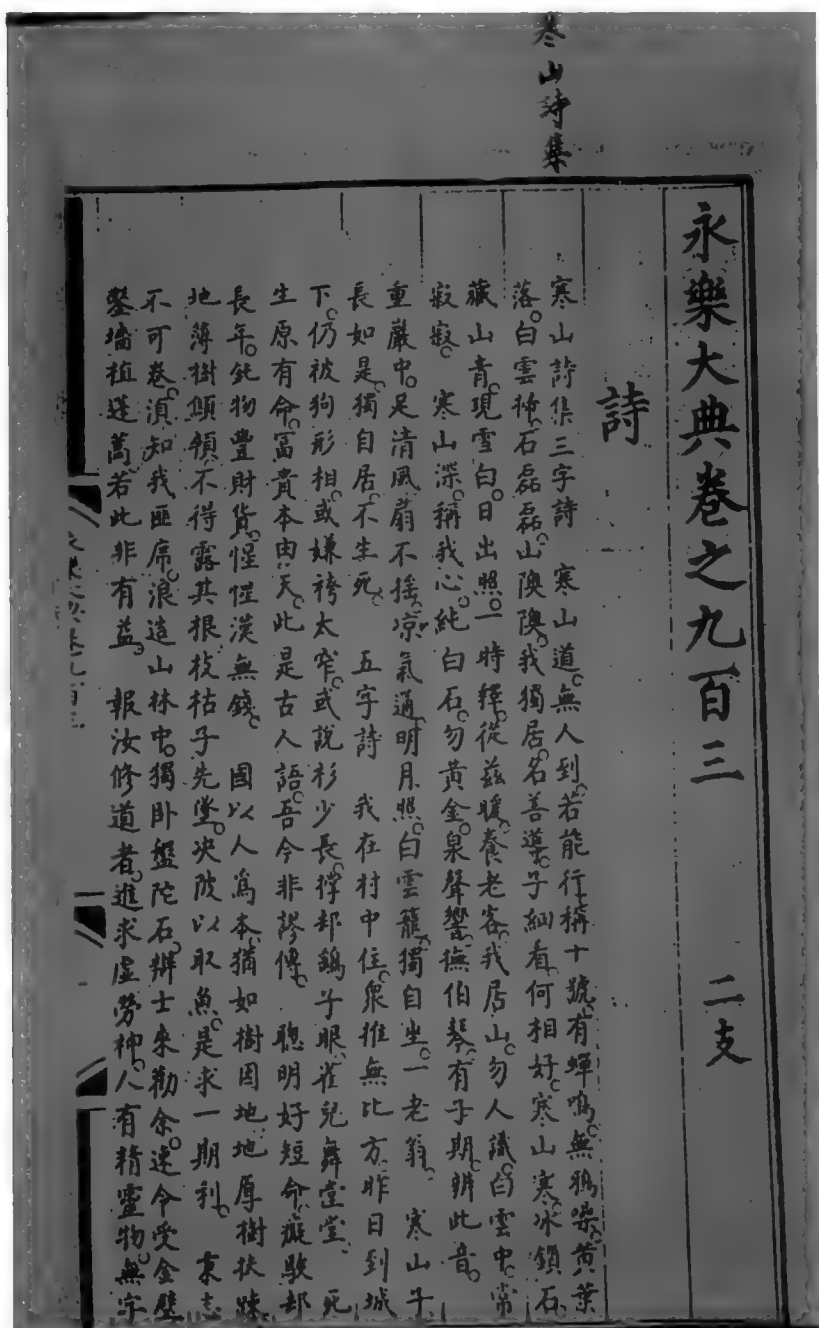 寒山詩集
永樂大典卷之九百三　二支
詩
寒山詩集三字詩　寒山道。無人到。若能行。稱十號。有蟬鳴。無鴉噪。黃葉
落。白雲掃。石磊磊。山隩隩。我獨居。名善導。子細看。何相好。寒山寒。冰鎖石。
藏山青。現雪白。日出照。一時釋。從茲暖。養老客。我居山。勿人識。白雲中。常
寂寂。　寒山深。稱我心。純白石。勿黃金。泉聲響。撫伯琴。有子期。辨此音。
重巖中。足清風。扇不搖。凉氣通。明月照。白雲籠。獨自坐。一老翁。　寒山子。
長如是。獨自居。不生死。　五字詩　我在村中住。衆推無比方。昨日到城
下。仍被狗形相。或嫌袴太窄。或說衫少長。撑却鷂子眼。雀兒舞堂堂。　死
生原有命。富貴本由天。此是古人語。吾今非謬傳。　聰明好短命。癡騃却
長年。鈍物豐財貨。惺惺漢無錢。　國以人爲本。猶如樹因地。地厚樹扶疎。
地薄樹顦顇。不得露其根。枝枯子先墜。決陂以取魚。是求一期利。　東志
不可卷。湏知我匪席。浪造山林中。獨卧盤陀石。辨士來勸余。速令受金璧。
鑿墻植蓬蒿。若此非有益。　報汝修道者。進求虛勞神。人有精靈物。無字
永樂大典卷九百三